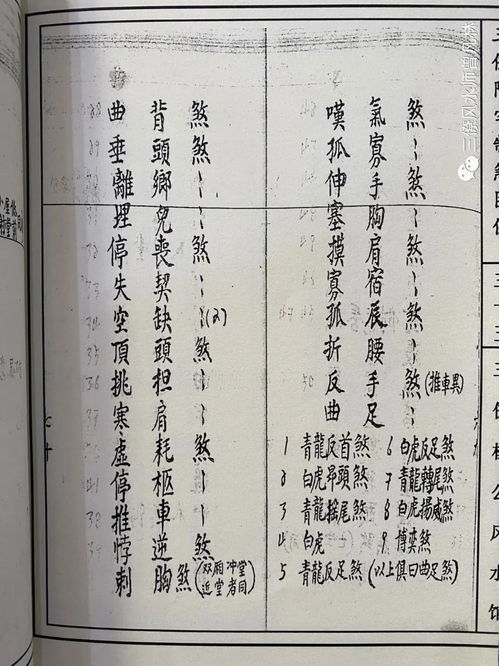 三僚风水师曾凤林
嘆氣煞
孤寡煞
伸手〃
塞胸〃
摸肩煞
寡宿〃
孤辰〃
折腰煞
反手煞(推車異)
曲足〃
1 青龍反首煞
2 白虎昂頭煞
3 青龍摇尾煞
4 白虎〃
5 青龍反足煞
6 白虎反足煞
7 青龍轉尾煞
8 白虎揚威煞
9 博奕煞
(以上俱曰曲足煞)
曲背煞
垂頭煞
離鄉〃
埋兒〃
停喪煞
失契〃
空缺〃(2)
頂頭煞
挑担〃
寒肩〃
虛耗煞
停柩〃
推車〃
悖逆煞
刺胸煞(双廂冲堂近堂者同)
七十
公风水馆